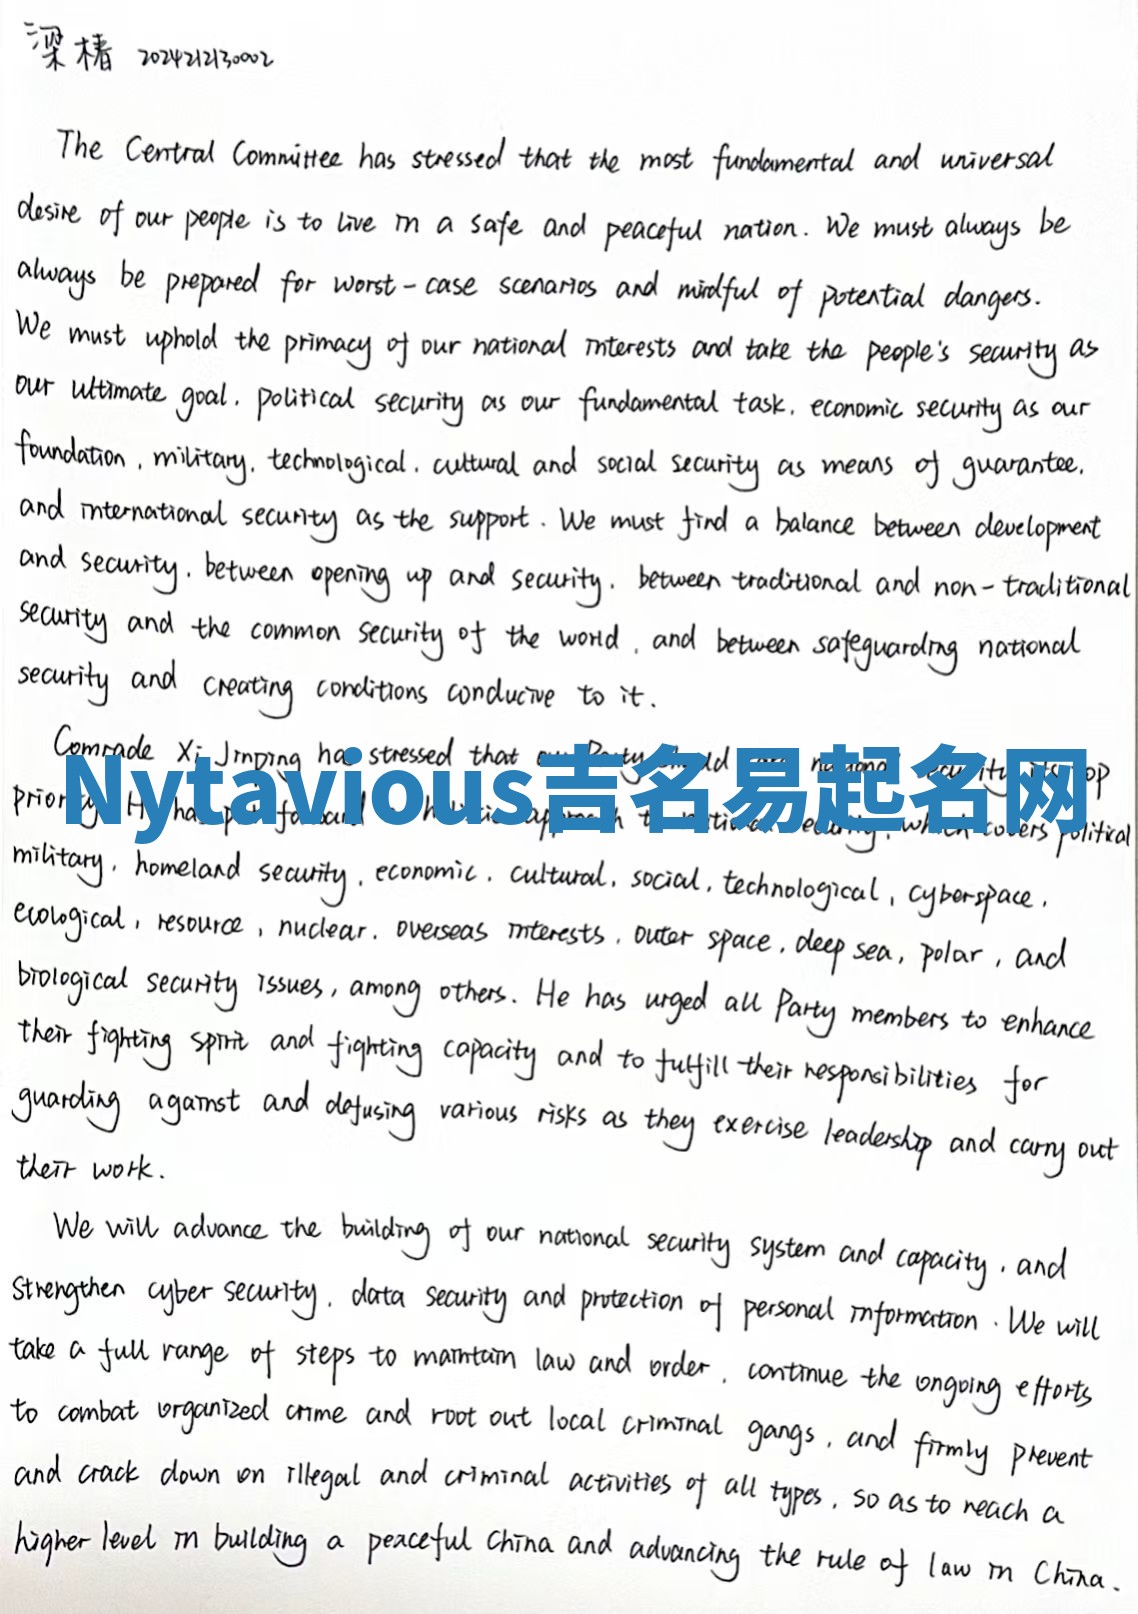 梁椿 2024212130002
The Central Committee has stressed that the most fundamental and universal
desire of our people is to live in a safe and peaceful nation. We must always be
always be prepared for worst-case scenarios and mindful of potential dangers.
We must uphold the primacy of our national interests and take the people's security as
our ultimate goal, political security as our fundamental task, economic security as our
foundation, military, technological, cultural and social security as means of guarantee,
and international security as the support. We must find a balance between development
and security, between opening up and security, between traditional and non-traditional
security and the common security of the world, and between safeguarding national
security and creating conditions conducive to it.
Comrade Xi Jinping has stressed that our Party should national security its top
Nytavious吉名易起名网
priority. He has put forward holistic approach to national security, which covers political
military, homeland security, economic, cultural, social, technological, cyberspace,
ecological, resource, nuclear, overseas interests, outer space, deep sea, polar, and
biological security issues, among others. He has urged all Party members to enhance
their fighting spirit and fighting capacity and to fulfill their responsibilities for
guarding against and defusing various risks as they exercise leadership and carry out
their work.
We will advance the building of our national security system and capacity, and
strengthen cyber security, data security and protection of personal information. We will
take a full range of steps to maintain law and order, continue the ongoing efforts
to combat organized crime and root out local criminal gangs, and firmly prevent
and crack down on illegal and criminal activities of all types, so as to reach a
higher level in building a peaceful China and advancing the rule of law in China.